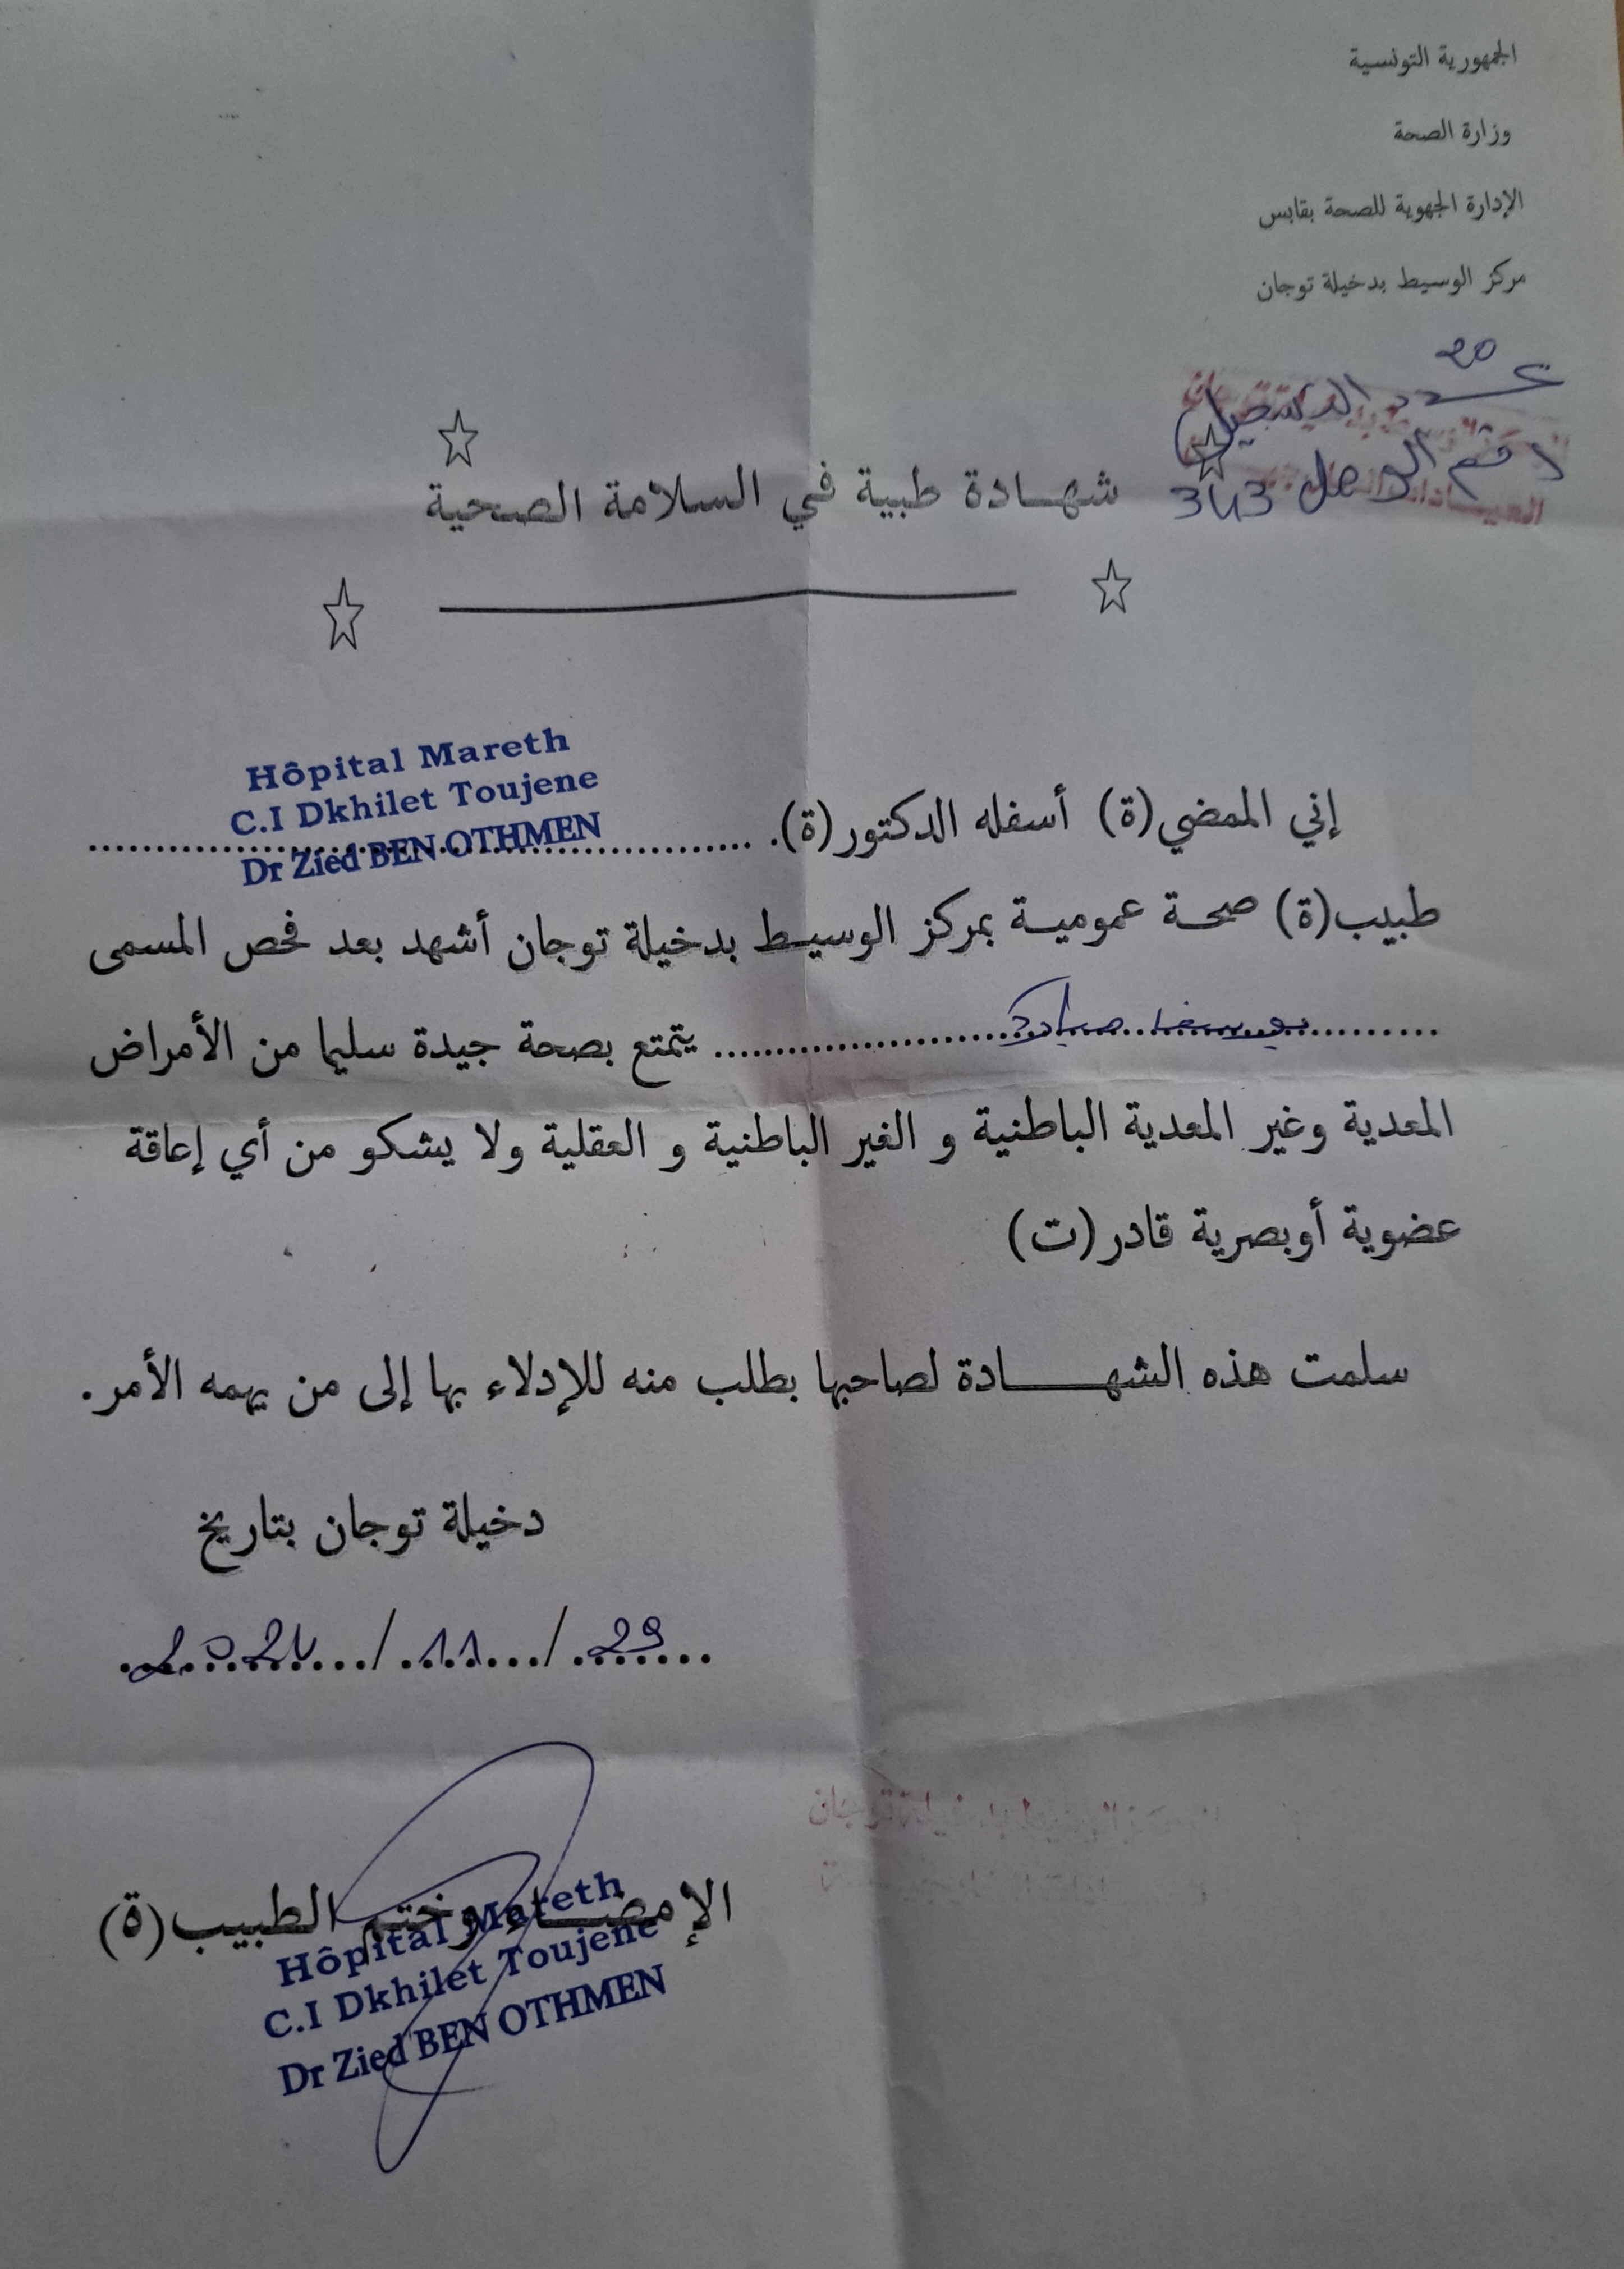 الجمهورية التونسية
وزارة الصحة
الإدارة الجهوية للصحة بقابس
مركز الوسيط بدخيلة توجان
20
عدد التسجيل
رقم الوصل 343
شهادة طبية في السلامة الصحية
Hôpital Mareth
C.I Dkhilet Toujene
Dr Zied BEN OTHMEN
إني الممضي(ة) أسفله الدكتور(ة). ......................................................
طبيب(ة) صحة عمومية بمركز الوسيط بدخيلة توجان أشهد بعد فحص المسمى
.......... يوسف ........................ يتمتع بصحة جيدة سليما من الأمراض
المعدية وغير المعدية الباطنية و الغير الباطنية و العقلية ولا يشكو من أي إعاقة
عضوية أوبصرية قادر(ت)
سلمت هذه الشهادة لصاحبها بطلب منه للإدلاء بها إلى من يهمه الأمر.
دخيلة توجان بتاريخ
29 / 11 / 2024
الإمضاء وختم الطبيب(ة)
Hôpital Mareth
C.I Dkhilet Toujene
Dr Zied BEN OTHMEN